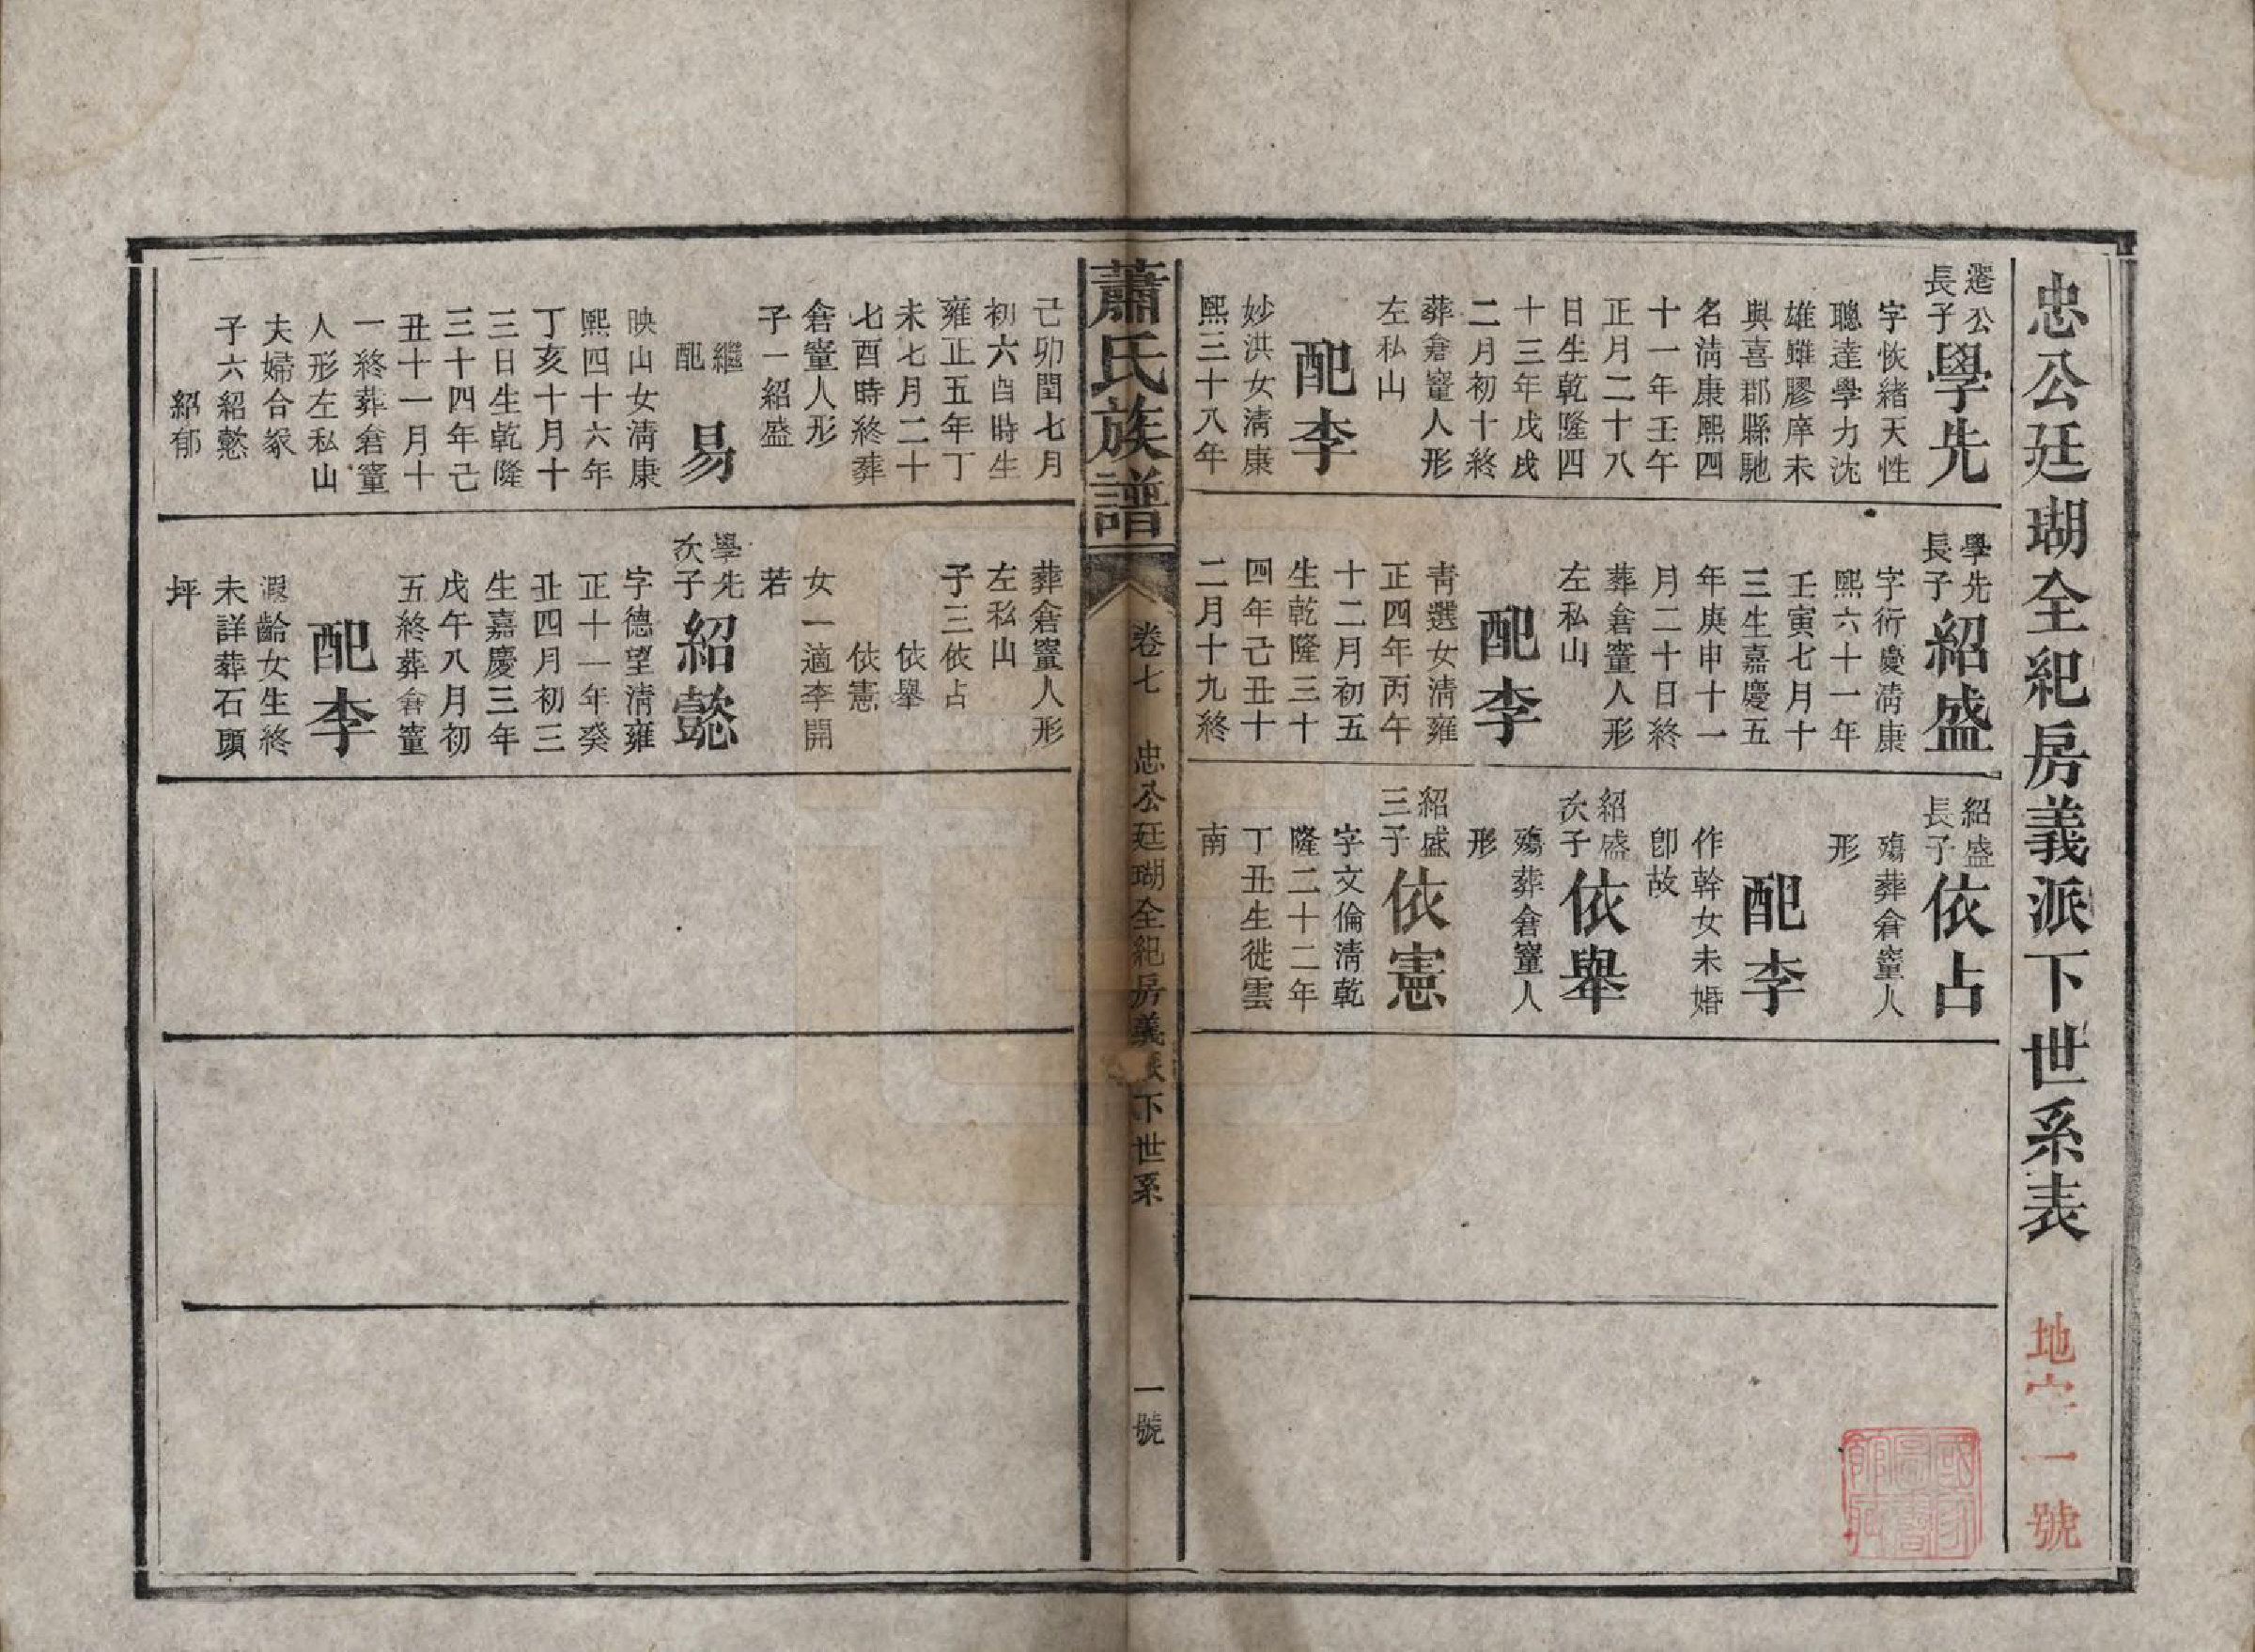 忠公廷瑚全紀房義派下世系表
地字一號
選公長子學先
字恢緒天性
聰達學力沈
雄雖膠庠未
與喜郡縣馳
名淸康熙四
十一年壬午
正月二十八
日生乾隆四
十三年戊戌
二月初十終
葬倉簹人形
左私山
配李
妙洪女淸康
熙三十八年
學先長子紹盛
字衍慶淸康
熙六十一年
壬寅七月十
三生嘉慶五
年庚申十一
月二十日終
葬倉簹人形
左私山
配李
靑選女淸雍
正四年丙午
十二月初五
生乾隆三十
四年己丑十
二月十九終
紹盛長子依占
殤葬倉簹人
形
配李
作幹女未婚
卽故
紹盛次子依舉
殤葬倉簹人
形
紹盛三子依憲
字文倫淸乾
隆二十二年
丁丑生徙雲
南
蕭氏族譜
卷七
忠公廷瑚全紀房義派下世系
一號
己卯閏七月
初六酉時生
雍正五年丁
未七月二十
七酉時終葬
倉簹人形
子一紹盛
繼配易
映山女淸康
熙四十六年
丁亥十月十
三日生乾隆
三十四年己
丑十一月十
一終葬倉簹
人形左私山
夫婦合冢
子六紹懿
紹郁
葬倉簹人形
左私山
子三依占
依舉
依憲
女一適李開
若
學先次子紹懿
字德望淸雍
正十一年癸
丑四月初三
生嘉慶三年
戊午八月初
五終葬倉簹
配李
遐齡女生終
未詳葬石頭
坪